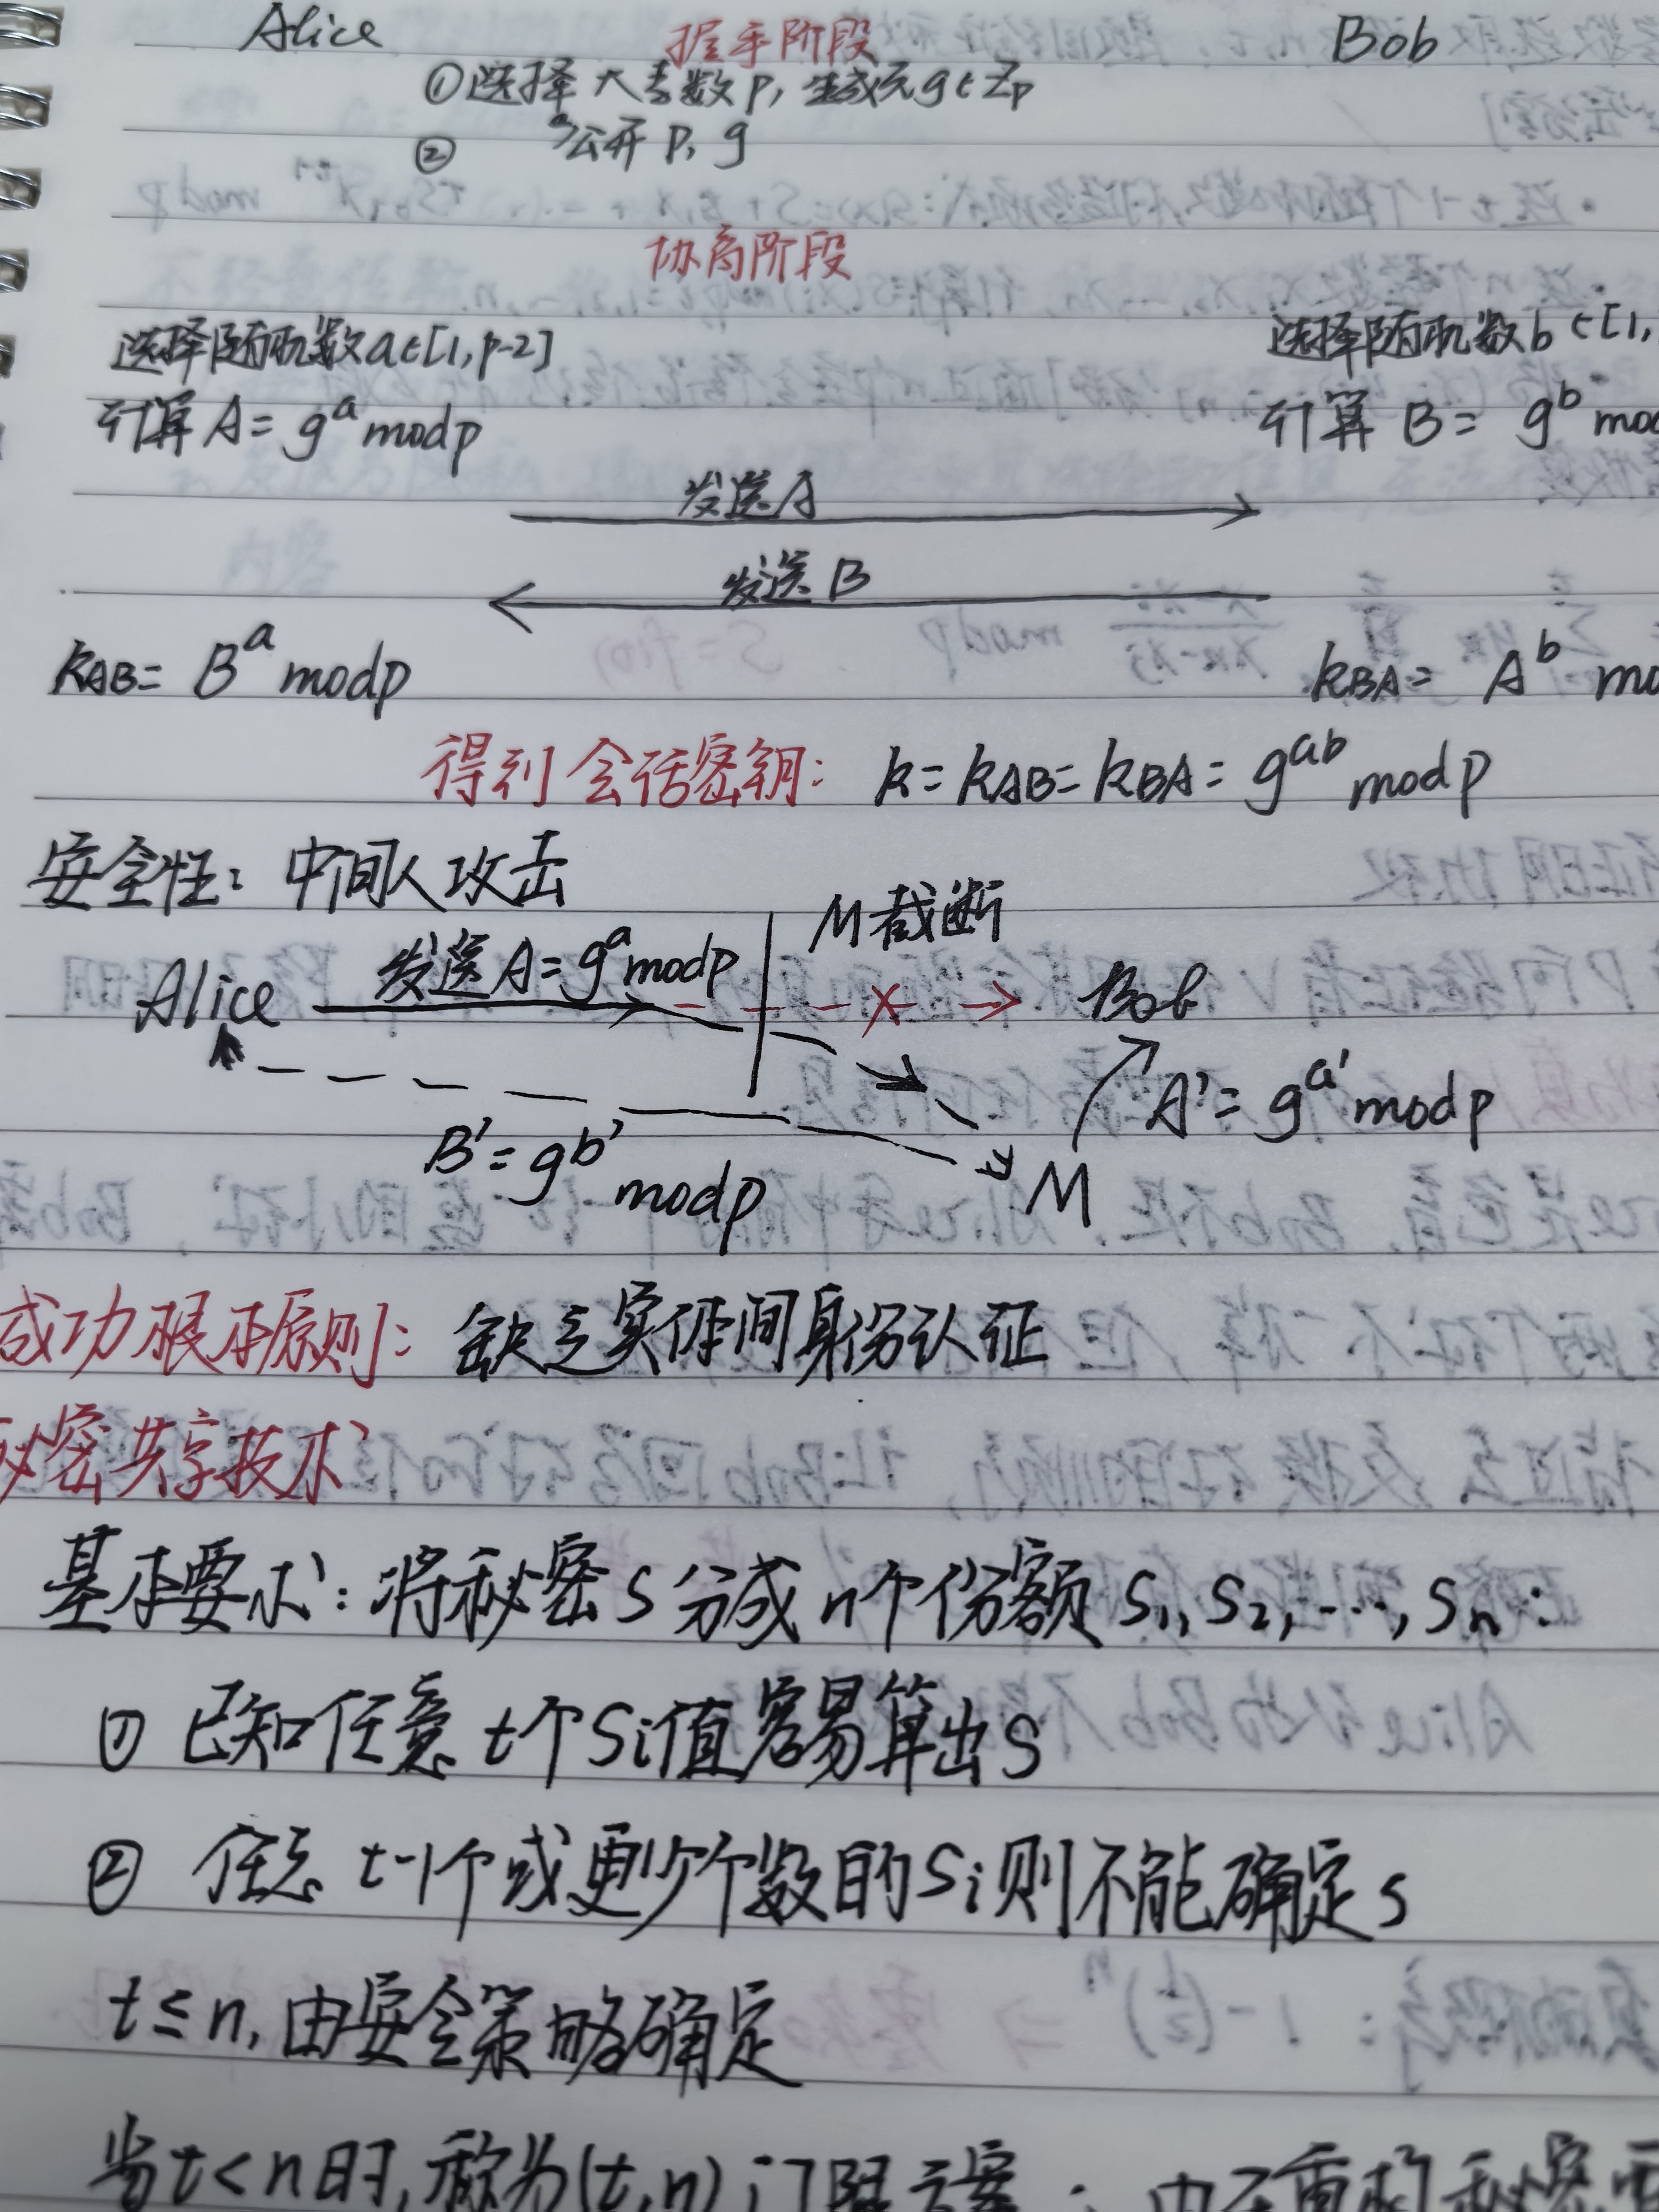 Alice 握手阶段 Bob
①选择大素数p, 生成元g∈Zp
② 公开 p, g
协商阶段
选择随机数a∈[1,p-2] 选择随机数b∈[1,
计算 A= g^a mod p 计算 B= g^b mod
发送A
发送B
kAB= B^a mod p kBA= A^b mo
得到会话密钥: k=kAB=kBA= g^ab mod p
安全性: 中间人攻击
M截断
发送A=g^a mod p
Alice Bob
A'= g^a' mod p
B'= g^b' mod p
M
成功根本原则: 缺乏实体间身份认证
秘密共享技术
基本要求: 将秘密S分成n个份额S1, S2, ..., Sn:
① 已知任意t个Si值容易算出S
② 任意t-1个或更少个数的Si则不能确定s
t≤n, 由安全策略确定
当t<n时, 称为(t,n)门限方案; 由于重构秘密